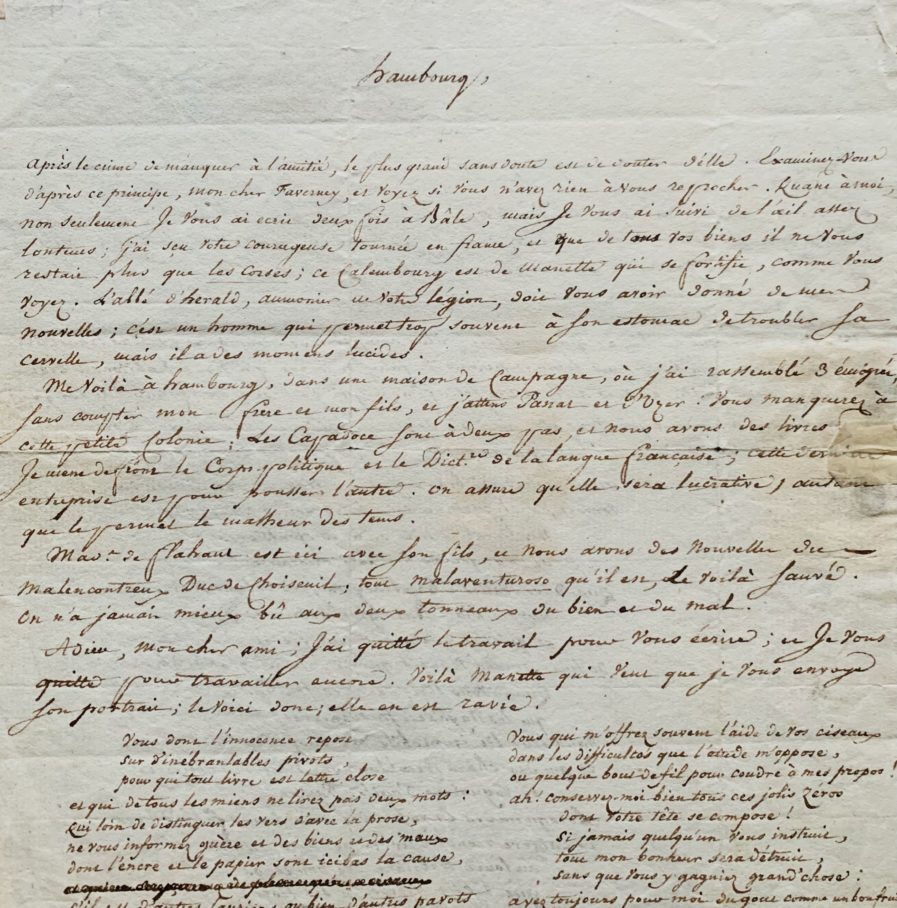 hambourg,
Après le crime de manquer à l'amitié, le plus grand sans doute est de douter d'elle. Examinez-vous
d'après ce principe, mon cher Taverney, et voyez si vous n'avez rien à vous reprocher. Quant à moi,
non seulement Je vous ai ecrit deux fois à Bâle, mais Je vous ai suivi de l'œil assez
lontems; j'ai sçu votre courageuse tournée en france, et que de tous vos biens il ne vous
restait plus que les Corses; ce Calembourg est de Manette qui se fortifie, comme vous
voyez. L'abbé d'herald, aumonier de votre légion, doit vous avoir donné de mes
nouvelles; c'est un homme qui permet trop souvent à son estomac de troubler sa
cervelle, mais il a des momens lucides.
Me voilà à hambourg, dans une maison de Campagne, où j'ai rassemblé 3 émigrés,
sans compter mon frère et mon fils, et j'attens Panat et . Vous manquerez à
cette petite Colonie; Les Capadoce sont à deux pas, et nous avons des livres
Je mene de front le Corps politique et le Dict.re de la langue française; cette derniere
entreprise est pour pousser l'autre. On assure qu'elle sera lucrative, autant
que le permet le malheur des tems.
Mad.e de flahaut est ici avec son fils, et nous avons des nouvelles du
malencontreux Duc de Choiseuil; tout malaventuroso qu'il est, Le voilà sauvé.
On n'a jamais mieux bû aux deux tonneaux du bien et du mal.
Adieu, mon cher ami; J'ai quitté le travail pour vous écrire; et Je vous
quitte pour travailler encore. Voilà Manette qui veut que je vous envoye
son portrait; le voici donc; elle en est ravie.
Vous dont l'innocence repose
sur d'inébranlables pivots,
pour qui tout livre est lettre close
et qui de tous les miens ne lirez pas deux mots:
Qui loin de distinguer les vers d'avec la prose,
ne vous informez guère et des biens et des maux
dont l'encre et le papier sont icibas la cause,
s'il est d'autres lauriers ou bien d'autres pavots
Vous qui m'offrez souvent l'aide de vos ciseaux
dans les difficultés que l'étude m'oppose,
ou quelque bout de fil pour coudre à mes propos!
ah! conservez-moi bien tous ces jolis zeros
dont votre tête se compose!
Si jamais quelqu'un vous instruit,
tout mon bonheur sera détruit,
sans que vous y gagniez grand'chose:
ayez toujours pour moi du gout comme un bon fruit